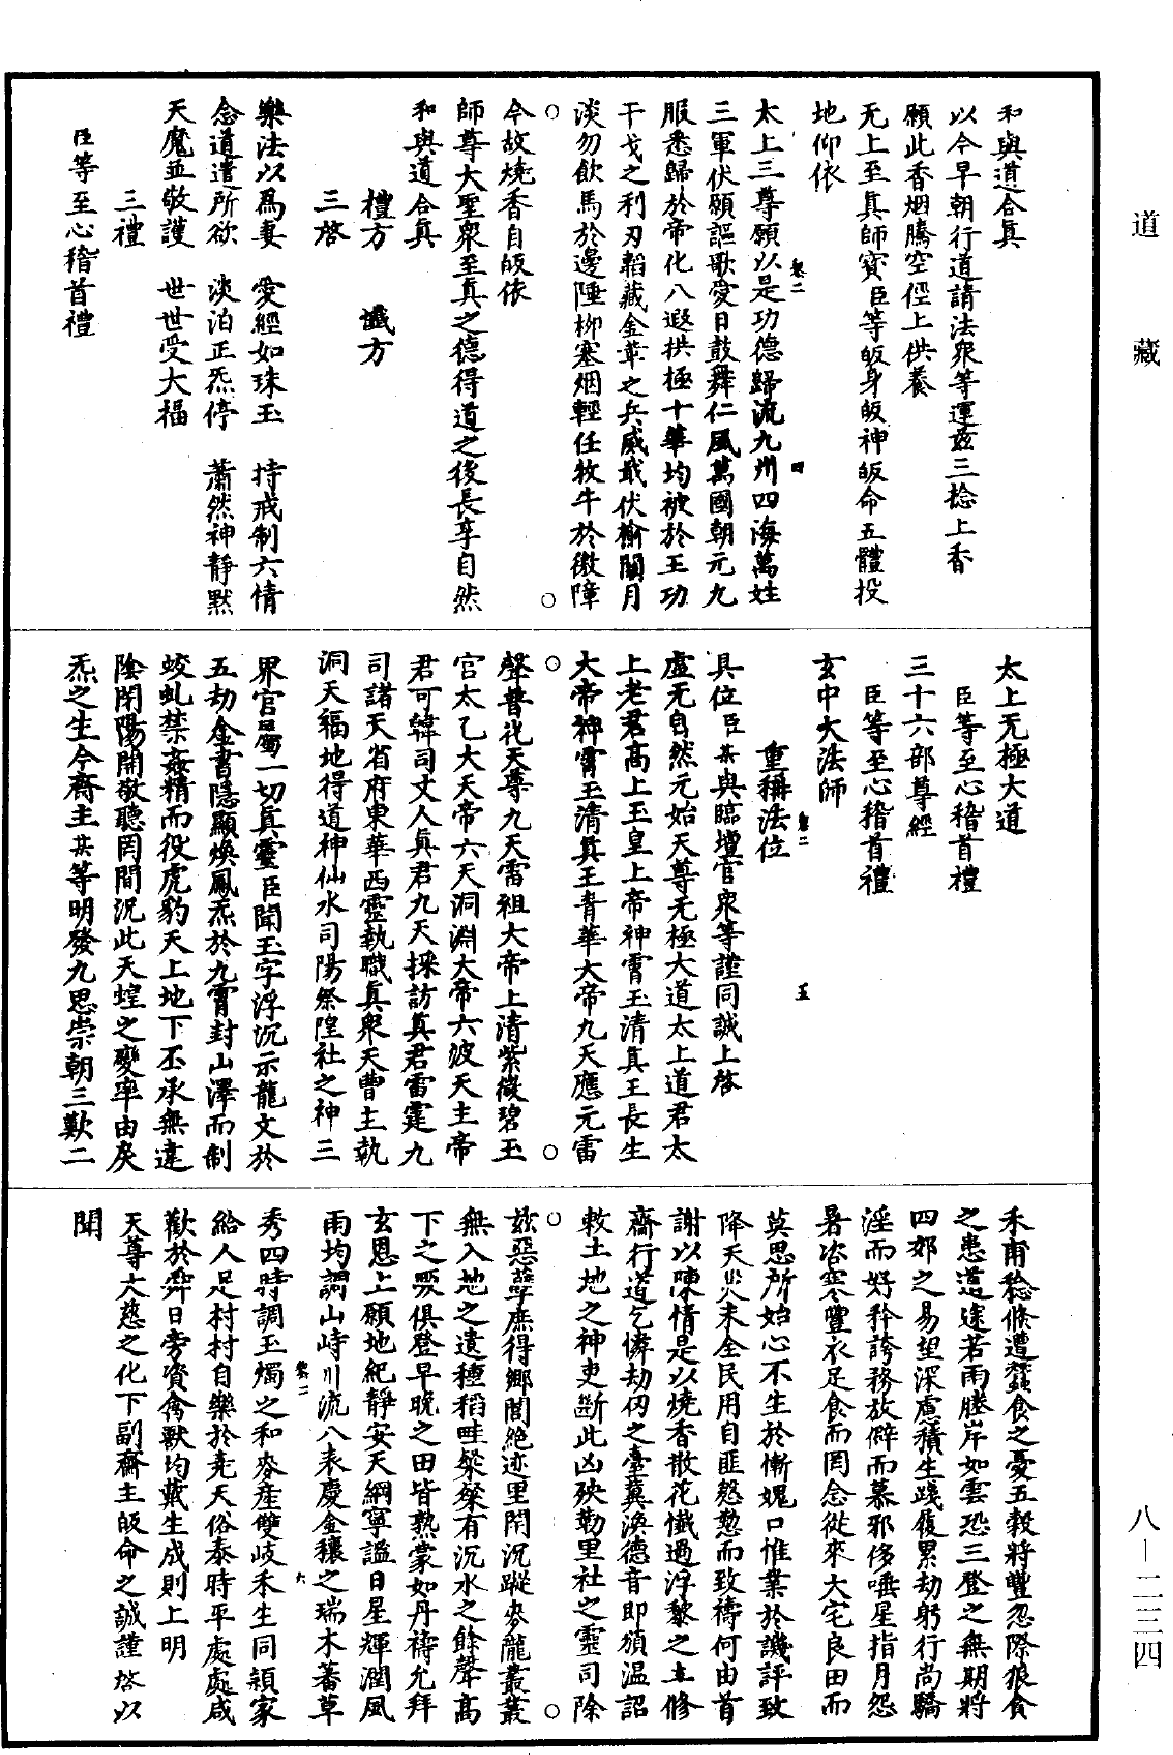 道藏
和與道合真
以今早朝行道請法衆等運玆三捻上香
願此香烟騰空徑上供養
无上至真師寳臣等皈身皈神皈命五體投
地仰依
卷二 四
太上三尊願以是功德歸流九州四海萬姓
三軍伏願謳歌愛日鼓舞仁風萬國朝元九
服悉歸於帝化八遐拱極十華均被於王功
干戈之利刃韜藏金革之兵威戢伏榆關月
淡勿飲馬於邊陲柳塞烟輕任牧牛於徼障
今故燒香自皈依
師尊大聖衆至真之德得道之後長享自然
和與道合真
禮方 懺方
三啓
樂法以爲妻 愛經如珠玉 持戒制六情
念道遣所欲 淡泊正炁停 蕭然神靜默
天魔並敬護 世世受大福
三禮
臣等至心稽首禮
太上无極大道
臣等至心稽首禮
三十六部尊經
臣等至心稽首禮
玄中大法師
卷二 五
重稱法位
具位臣某與臨壇官衆等謹同誠上啓
虛无自然元始天尊无極大道太上道君太
上老君高上玉皇上帝神霄玉清真王長生
大帝神霄玉清真王青華大帝九天應元雷
聲普化天尊九天雷祖大帝上清紫微碧玉
宮太乙大天帝六天洞淵大帝六波天主帝
君可韓司丈人真君九天採訪真君雷霆九
司諸天省府東華西靈執職真衆天曹主執
洞天福地得道神仙水司陽祭隍社之神三
界官屬一切真靈臣聞玉字浮沉示龍文於
五劫金書隱顯煥鳳炁於九霄封山澤而制
蛟虬禁姦精而役虎豹天上地下丕承無違
陰閉陽開敬聽罔間況此天蝗之變率由戾
炁之生今齋主某等明發九思崇朝三歎二
禾甫稔倐遭蝗食之憂五穀將豐忽際狼食
之患道途若雨塍岸如雲恐三登之無期將
四郊之易望深慮積生踐復累劫躬行尚驕
淫而好矜誇務放僻而慕邪侈唾星指月怨
暑咨寒豐衣足食而罔念從來大宅良田而
莫思所始心不生於慚媿口惟業於譏評致
降天災未全民用自匪慇懃而致禱何由首
謝以陳情是以燒香散花懺過浮黎之土修
齋行道乞憐劫仞之臺冀渙德音即頒温詔
敕土地之神吏斷此凶殃勒里社之靈司除
玆惡孽庶得鄉閭絶迹里閈沉蹤麥隴叢叢
無入地之遺種稻畦粲粲有沉水之餘聲高
下之畝俱登早晚之田皆熟蒙如丹禱允拜
玄恩上願地紀靜安天綱寧謐日星輝潤風
雨均調山峙川流八表慶金穰之瑞木蕃草
卷二 六
秀四時調玉燭之和麥産雙岐禾生同穎家
給人足村村自樂於堯天俗泰時平處處咸
歡於舜日旁資禽獸均戴生成則上明
天尊大慈之化下副齋主皈命之誠謹啓以
聞
八—二三四